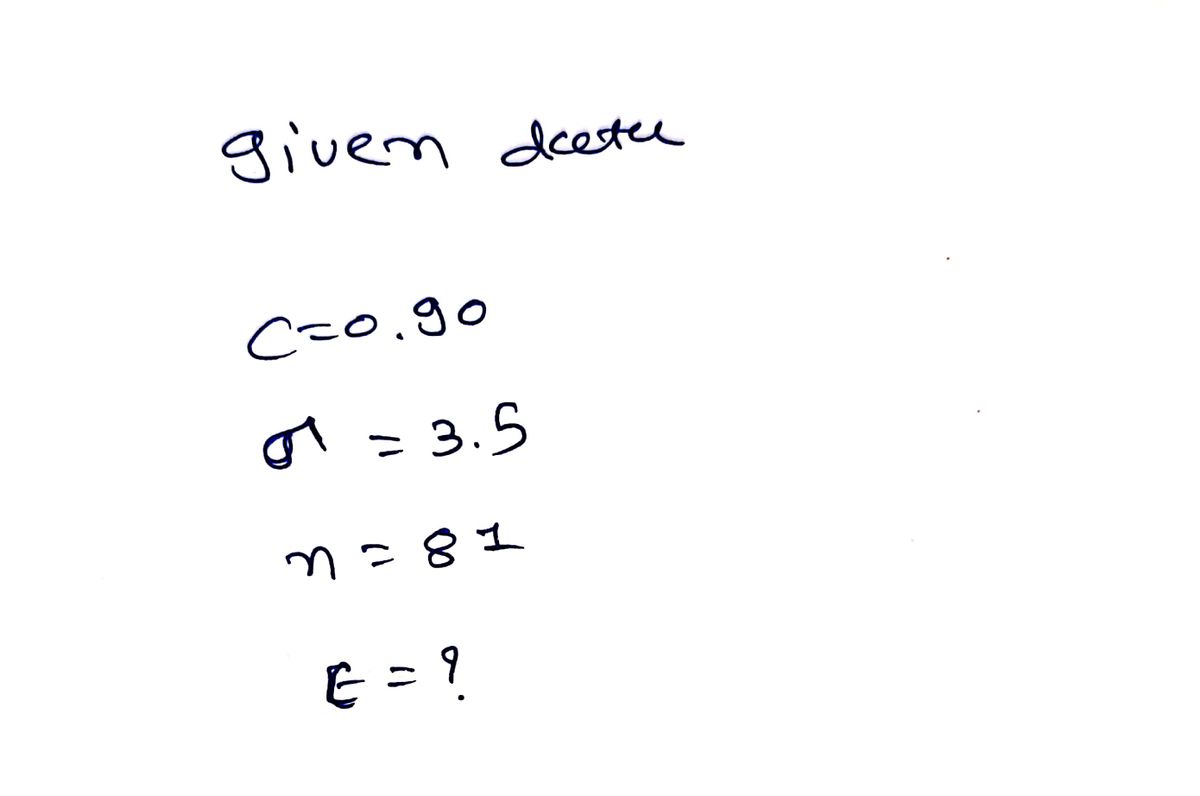 given data
C=0.90
σ = 3.5
n = 81
E = ?